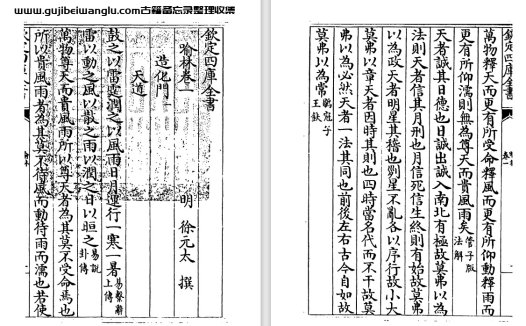 www.gujibeiwanglu.com古籍备忘录整理收集
欽定四庫全書
喻林卷一
明 徐元太 撰
造化門一
天道
鼓之以雷霆潤之以風雨日月運行一寒一暑易繫辭上傳
雷以動之風以散之雨以潤之日以烜之易說卦傳
萬物尊天而貴風雨所以尊天者為其莫不受命焉也
所以貴風雨者為其莫不待風而動待雨而濡也若使
欽定四庫全書
卷一
萬物釋天而更有所受命釋風而更有所仰動釋雨而
更有所仰濡則無為尊天而貴風雨矣管子版法解
天者誠其日德也日誠出誠入南北有極故莫弗以為
法則天者信其月刑也月信死信生終則有始故莫弗
以為政天者明星其稽也列星不亂各以序行故小大
莫弗以章天者因時其則也四時當名代而不干故莫
弗以為必然天者一法其同也前後左右古今自如故
莫弗以為常鶡冠子王鈇